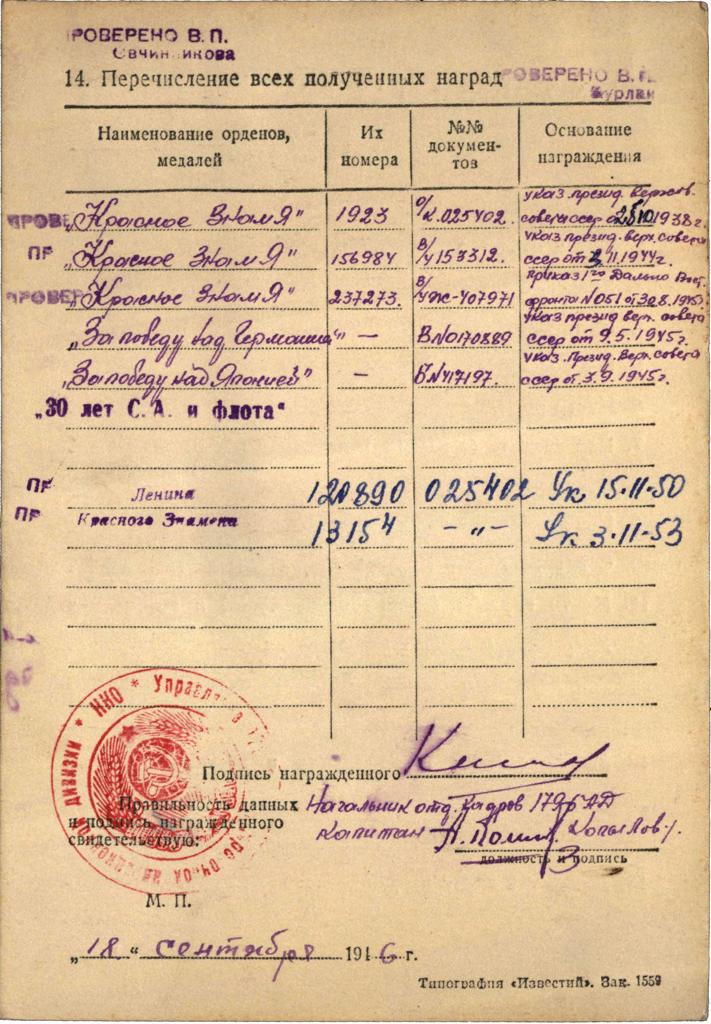 РОВЕРЕНО В. П.
Овчинникова
14. Перечисление всех полученных наград
ОВЕРЕНО В. П.
Бурлак
Наименование орденов, медалей
Их номера
№№ докумен-тов
Основание награждения
ПРОВЕ „Красное Знамя" 1923 о/к.025402. указ. презид. Верховн. совета ссср от 25/X 1938 г.
ПР „Красное Знамя" 156984 В/ч 153312. указ през. верх. совета ссср от 3.11.1944г.
ПРОВЕР „Красное Знамя" 237273. В/ЧЖ-407971 приказ 1го Дально Вост. фронта №051 от 30.8.1945г.
„За победу над Германией" — В№0170889 указ презид вер. совета ссср от 9.5.1945г.
„За победу над Японией" — Б№417197. указ. презид. Верх. совета ссср от 3.9.1945г.
„30 лет С. А. и флота"
ПР Ленина 120890 025402 Ук 15·11·50
ПР Красного Знамени 13154 -„- Ук 3·11·53
* ННО * Управл
дивизии
Подпись награжденного
Правильность данных и подпись награжденного свидетельствую:
Начальник отд. кадров 179 САД
капитан Копылов
должность и подпись
М. П.
„18" сентября 1946 г.
Типография «Известий». Зак. 1559